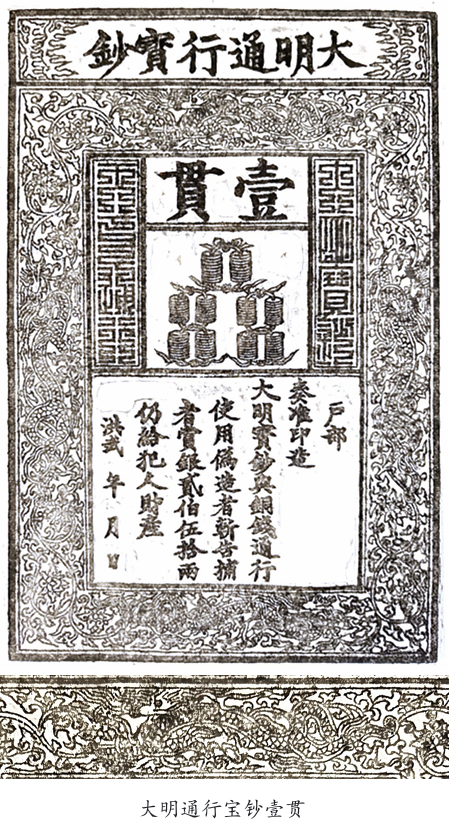 大明通行寶鈔
壹貫
户部
奏准印造
大明寶鈔與銅錢通行
使用僞造者斬告捕
者賞銀貳伯伍拾兩
仍給犯人財產
洪武 年 月 日
大明通行宝钞壹贯